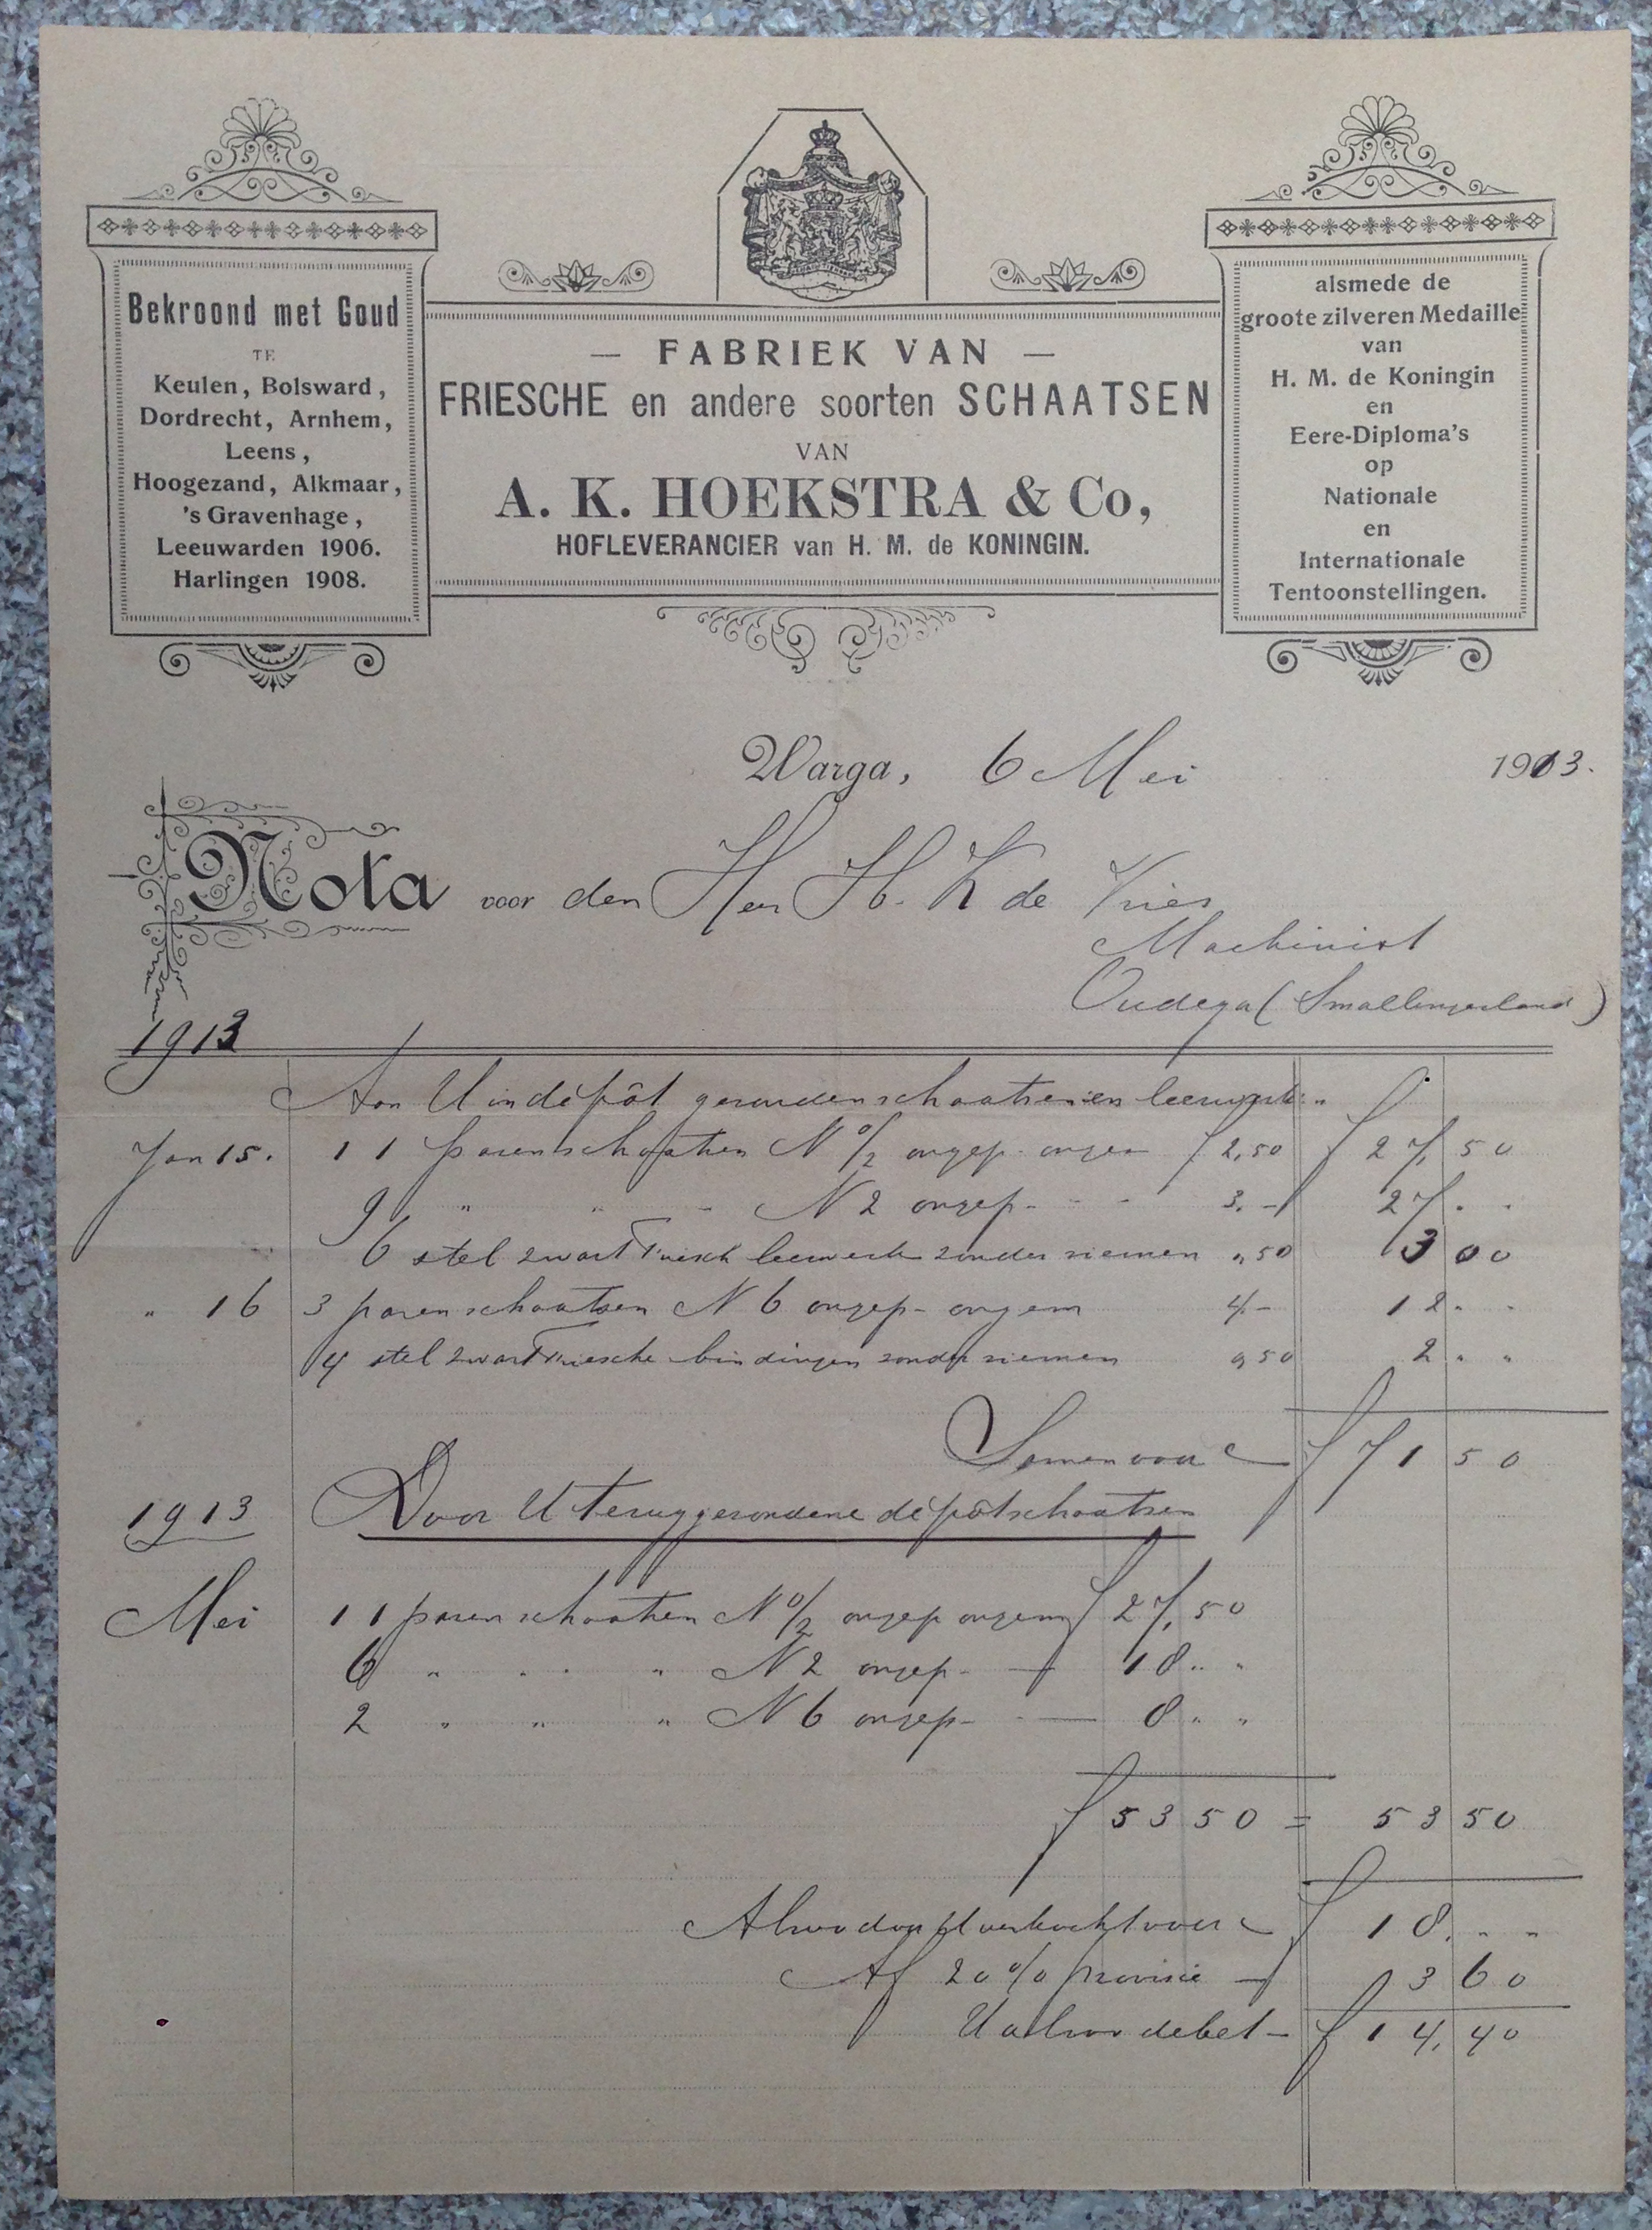 Bekroond met Goud
TE
Keulen, Bolsward,
Dordrecht, Arnhem,
Leens,
Hoogezand, Alkmaar,
's Gravenhage,
Leeuwarden 1906.
Harlingen 1908.
— FABRIEK VAN —
FRIESCHE en andere soorten SCHAATSEN
VAN
A. K. HOEKSTRA & Co,
HOFLEVERANCIER van H. M. de KONINGIN.
alsmede de
groote zilveren Medaille
van
H. M. de Koningin
en
Eere-Diploma's
op
Nationale
en
Internationale
Tentoonstellingen.
Warga, 6 Mei 1913.
Nota voor den Heer H. K de Vries
Machinist
Oudega (Smallingerland)
1913
Aan U in dépôt gezonden schaatsen en leerwerk f
Jan 15. 11 paren schaatsen N 0/2 ongep. ongem f 2,50 f 27,50
9 " " " N 2 ongep. - - 3.- 27. . .
6 stel zwart Friesch leerwerk zonder riemen ",50 3 00
" 16 3 paren schaatsen N 6 ongep. ongem 4.- 12. . .
4 stel zwart Friesche bindingen zonder riemen 0,50 2 " "
Samen voor f 71 50
1913 Door U teruggezondene dépôtschaatsen
Mei 11 paren schaatsen N 0/2 ongep ongem f 27,50
6 " " " N 2 ongep. — 18 " "
2 " " " N 6 ongep. — 8 " "
f 53 50 = 53 50
Alzoo door U verkocht voor f 18. " "
Af 20 % provisie — f 3 60
U alzoo debet — f 14,40